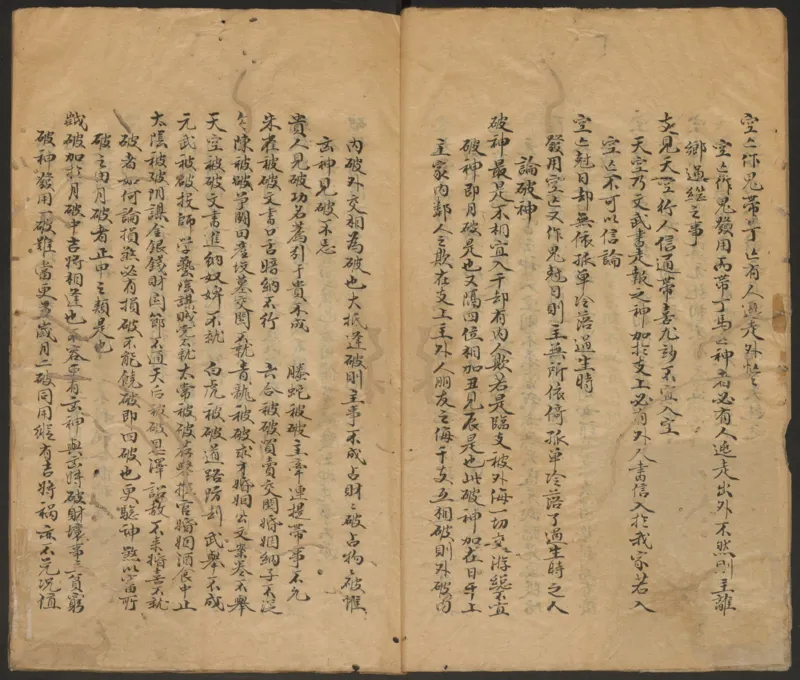 空亡作鬼帶丁亡有人逃走外
空亡作鬼發用兩帶丁馬之神者必有人逃走出外不然則主離
鄉過繼之事
支見天空行人信通帶喜尤妙不宜入空
天空乃文武書走報之神加於支上必有外人書信入於我家若入
空亡不可以信論
空亡尅日却無依孤單冷落過生時
發用空亡又作鬼尅日則主無所依倚孤單冷落了過生時之人
論破神
破神最是不相宜入干却有內人欺若是臨支被外侮一切交游總不宜
破神即月破是也又隔四位相加丑見辰是也此破神加在日干上
主家內鄰人之欺在支上主外人朋友之侮干支互相破則外破內
內破外交相為破也大抵逢破則主事不成占財破占物破惟
玄神見破不忌
貴人見破功名薦引于貴不成　螣蛇被破主牽連提帶事不允
朱雀被破文書口舌婚納不行　六合被破買賣交關婚姻納子不
勾陳被破爭關田產坟墓交關不就　青龍被破求才婚姻公文案卷不舉
天空被破文書進納奴婢不就　白虎被破道路防刦武舉不成
元武被破投師學藝陰謀賊盜不就　太常被破　官婚姻酒食中止
太陰被破陰謀金銀錢財因節不通　天后被破恩澤詔赦不來婚喜不就
破者如何論損煞必有損破不能饒破即四破也更驗神煞以當所
破之由月破者正申之類是也
歲破加於月破中吉將相逢也不容更有玄神與玄將破財壞事主貧窮
破神發用破難當更畏歲月二破同用縱有吉將禍亦不免况值